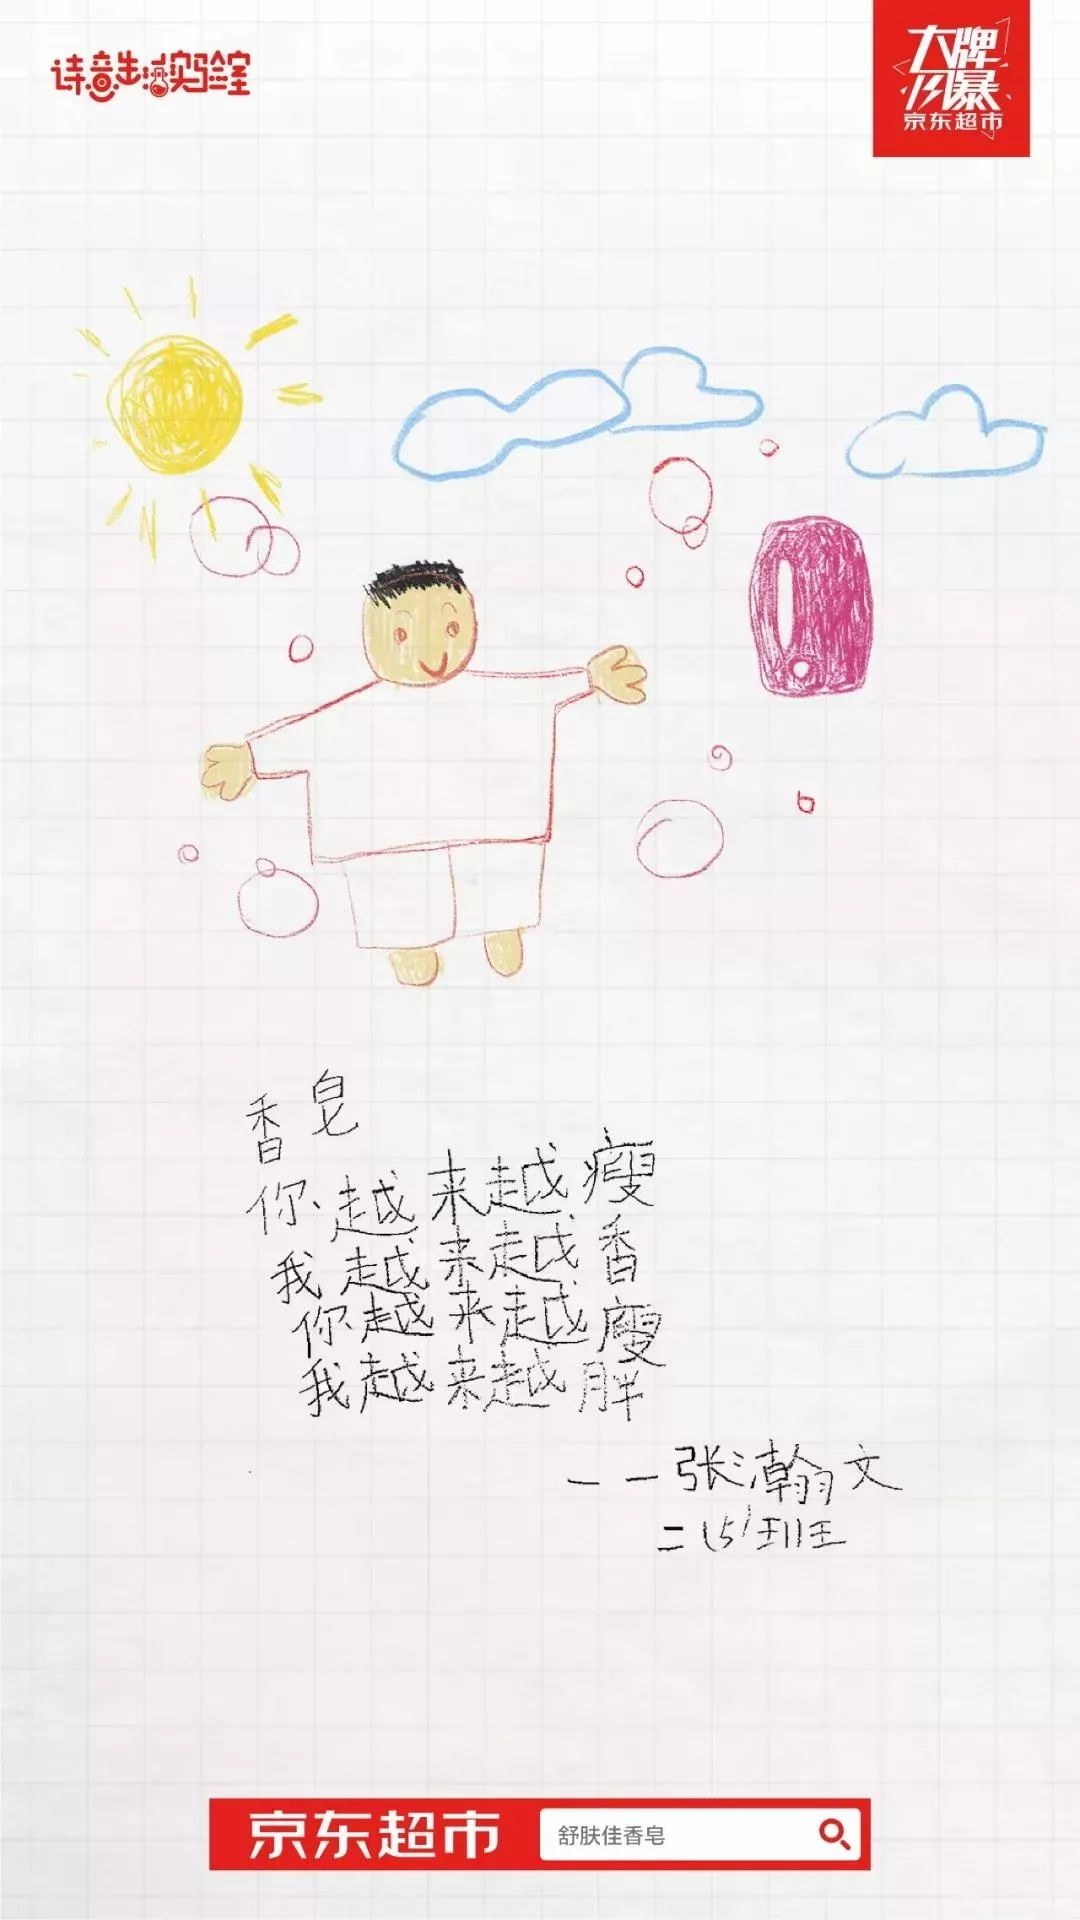 诗意生活实验室
大牌风暴
京东超市
香皂
你越来越瘦
我越来越香
你越来越瘦
我越来越胖
——张瀚文
二(5)班
京东超市 舒肤佳香皂